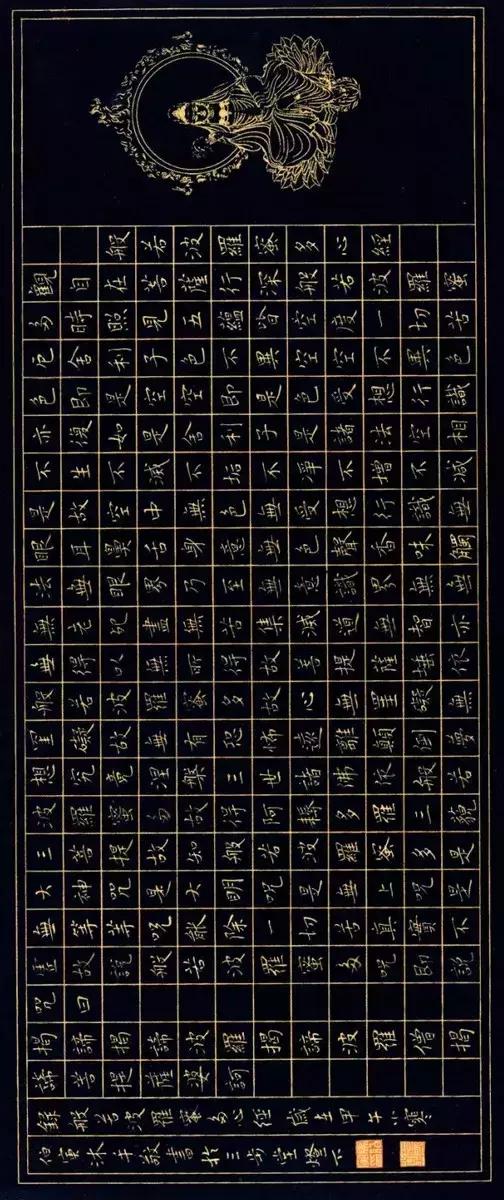 般若波羅蜜多心經
觀自在菩薩行深般若波羅蜜
多時照見五蘊皆空度一切苦
厄舍利子色不異空空不異色
色即是空空即是色受想行識
亦復如是舍利子是諸法空相
不生不滅不垢不淨不增不減
是故空中無色無受想行識無
眼耳鼻舌身意無色聲香味觸
法無眼界乃至無意識界無無
無老死盡無苦集滅道無智亦
無得以無所得故菩提薩埵依
般若波羅蜜多故心無罣礙無
罣礙故無有恐怖遠離顛倒夢
想究竟涅槃三世諸佛依般若
波羅蜜多故得阿耨多羅三藐
三菩提故知般若波羅蜜多是
大神咒是大明咒是無上咒是
無等等咒能除一切苦真實不
虛故說般若波羅蜜多咒即說
咒曰
揭諦揭諦波羅揭諦波羅僧揭
諦菩提薩婆訶
錄般若波羅蜜多心經歲在甲午小寒
伯寅沐手敬書於三堂燈下